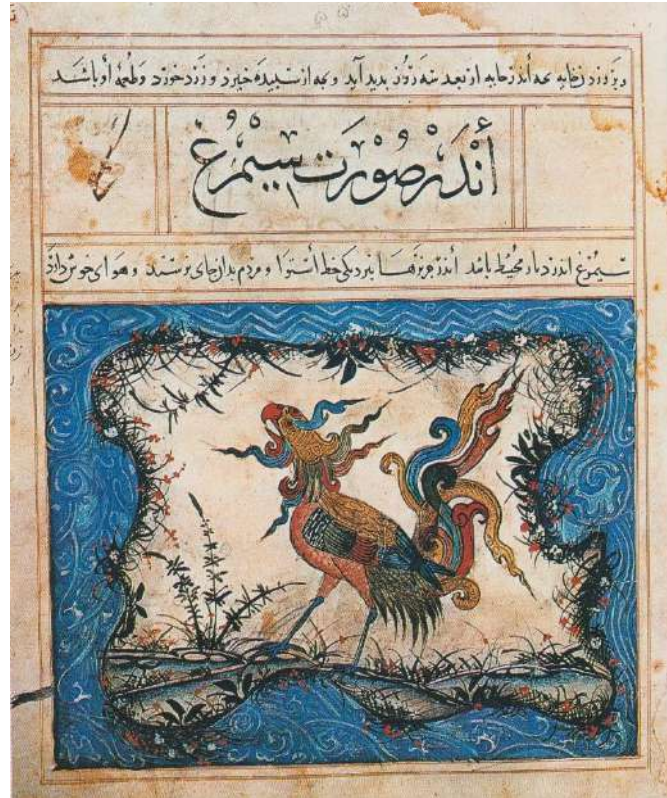 بچه أندر خایه از بعد سه روز بدید آید و بچه از سبیده خیزد و زرد خورد و طعمهٔ او باشد
أَنْدَرْ صُوْرَت سِیْمُرْغ
سیمُرغ اندر محُیط باشد أندر جزیرهها بنزدیکی خط أستوا و مردم بدان جای نرسند و هوای خوش دارد